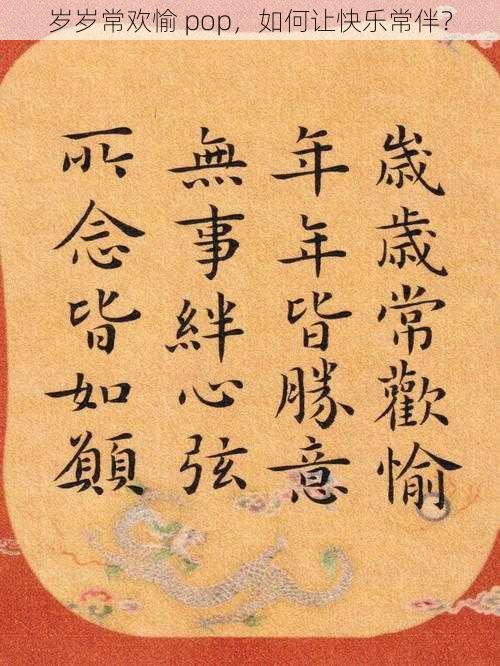 岁岁常欢愉 pop，如何让快乐常伴？
歳歳常歡愉
年年皆勝意
無事絆心弦
所念皆如願